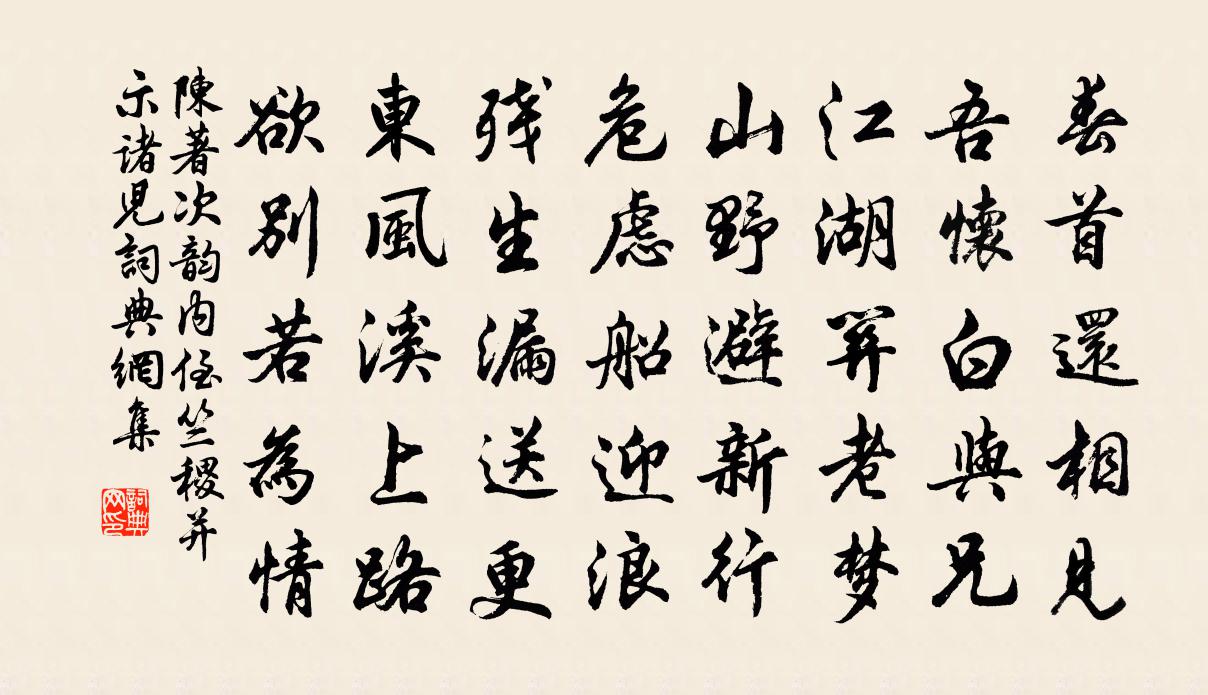 春首還相見
吾懷白與兄
江湖羿老梦
山野避新行
危慮船迎浪
残生漏送更
東風溪上路
欲別若為情
陳著次韵内侄竺稷并
示诸兒詞典網集
詞典网印